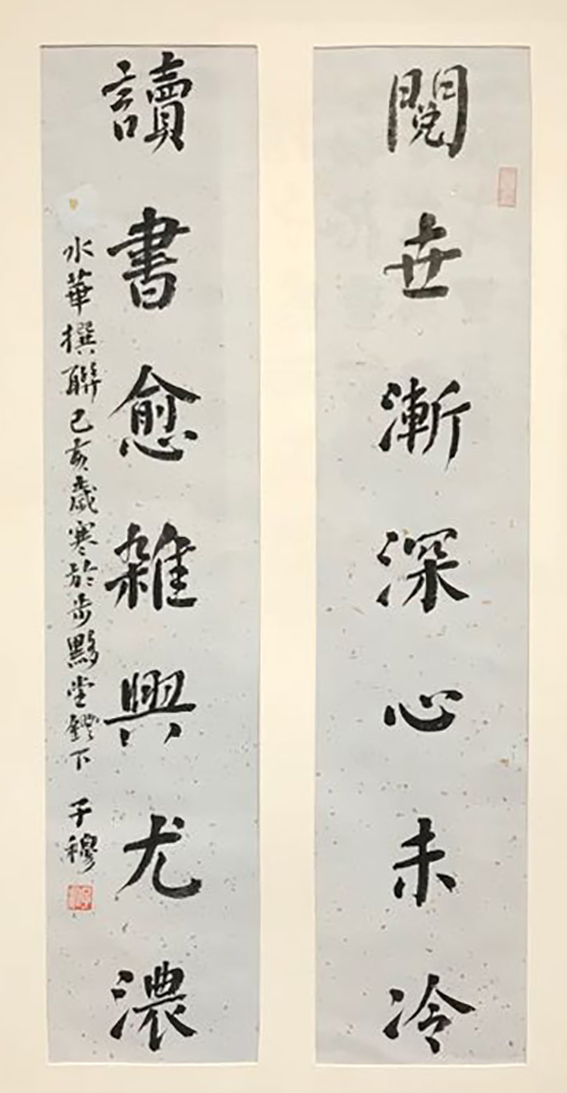 閱世漸深心未冷
讀書愈雜興尤濃
水華撰聯己亥歲寒於步黟堂鐙下 子穆